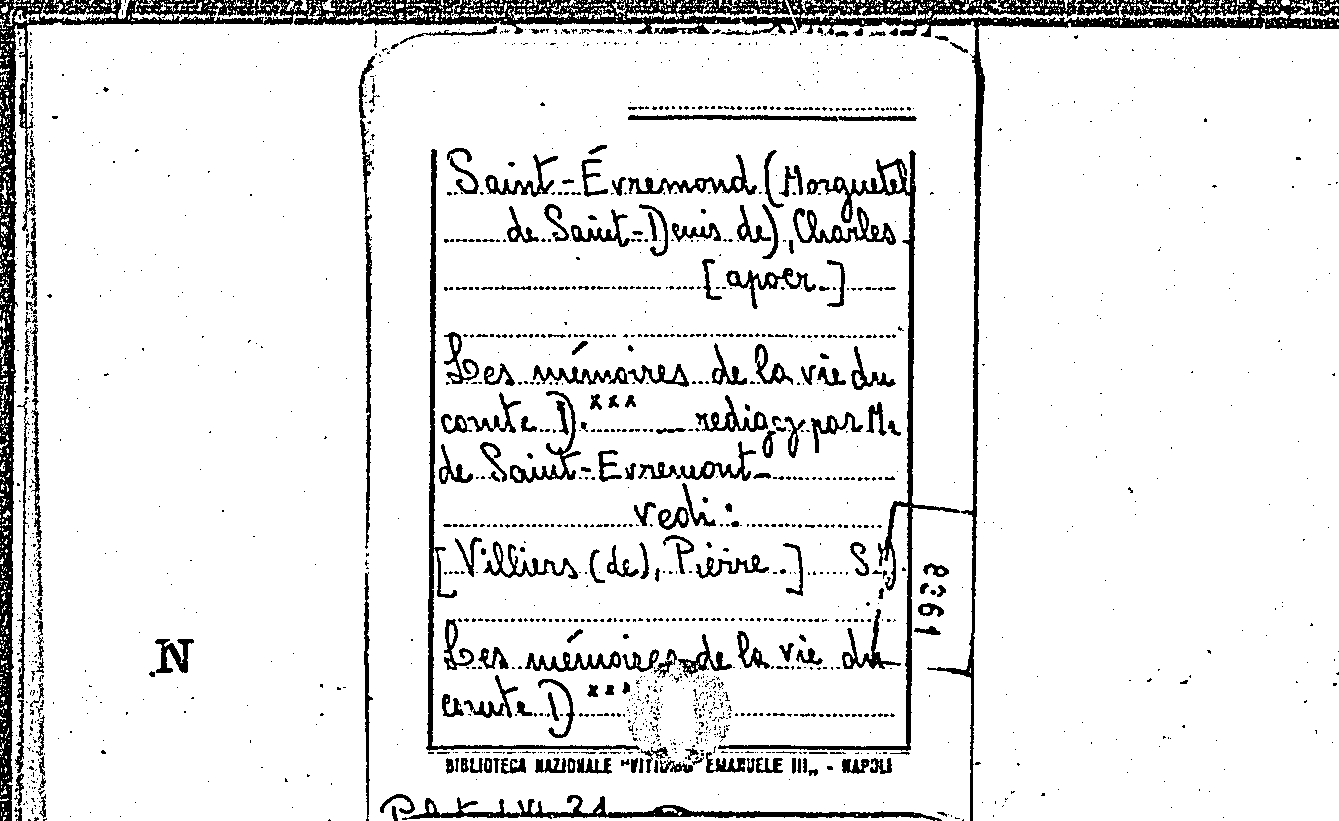 Saint-Évremond (Morguetel
de Saint-Denis de), Charles
[apocr.]
Les mémoires de la vie du
comte D.*** __ redigez par M.
de Saint-Evremont_
vedi:
[Villiers (de), Pierre.] S.
1928
Les mémoires de la vie du
comte D***
N
BIBLIOTECA NAZIONALE "VITTORIO EMANUELE III„ - NAPOLI